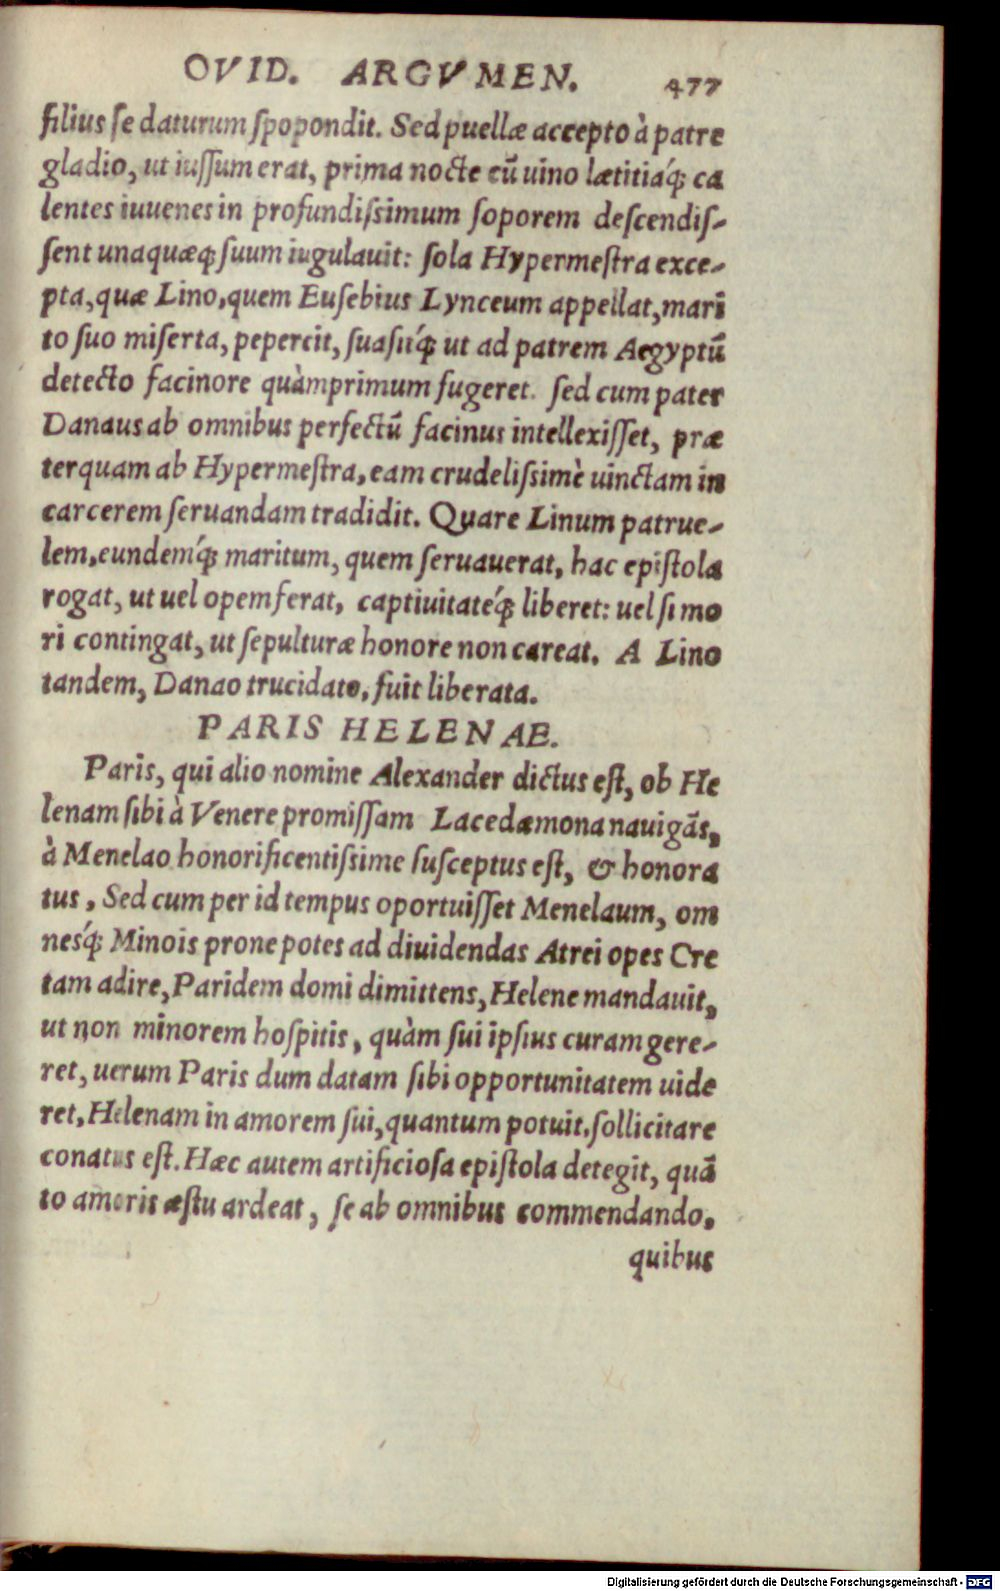 OVID. ARGVMEN. 477
filius se daturum spopondit. Sed puellæ accepto à patre
gladio, ut iussum erat, prima nocte cũ uino lætitiáq́; ca
lentes iuuenes in profundissimum soporem descendis-
sent unaquæq; suum iugulauit: sola Hypermestra exce-
pta, quæ Lino, quem Eusebius Lynceum appellat, mari
to suo miserta, pepercit, suasitq́; ut ad patrem Aegyptũ
detecto facinore quàmprimum fugeret. sed cum pater
Danaus ab omnibus perfectũ facinus intellexisset, præ
terquam ab Hypermestra, eam crudelissimè uinctam in
carcerem seruandam tradidit. Quare Linum patrue-
lem, eundemq́; maritum, quem seruauerat, hac epistola
rogat, ut uel opem ferat, captiuitateq́; liberet: uel si mo
ri contingat, ut sepulturæ honore non careat. A Lino
tandem, Danao trucidato, fuit liberata.
PARIS HELENAE.
Paris, qui alio nomine Alexander dictus est, ob He
lenam sibi à Venere promissam Lacedæmona nauigãs,
à Menelao honorificentissime susceptus est, & honora
tus, Sed cum per id tempus oportuisset Menelaum, om
nesq́; Minois pronepotes ad diuidendas Atrei opes Cre
tam adire, Paridem domi dimittens, Helene mandauit,
ut non minorem hospitis, quàm sui ipsius curam gere-
ret, uerum Paris dum datam sibi opportunitatem uide
ret, Helenam in amorem sui, quantum potuit, sollicitare
conatus est. Hæc autem artificiosa epistola detegit, quã
to amoris æstu ardeat, se ab omnibus commendando,
quibus
Digitalisierung gefördert durch die Deutsche Forschungsgemeinschaft - DFG